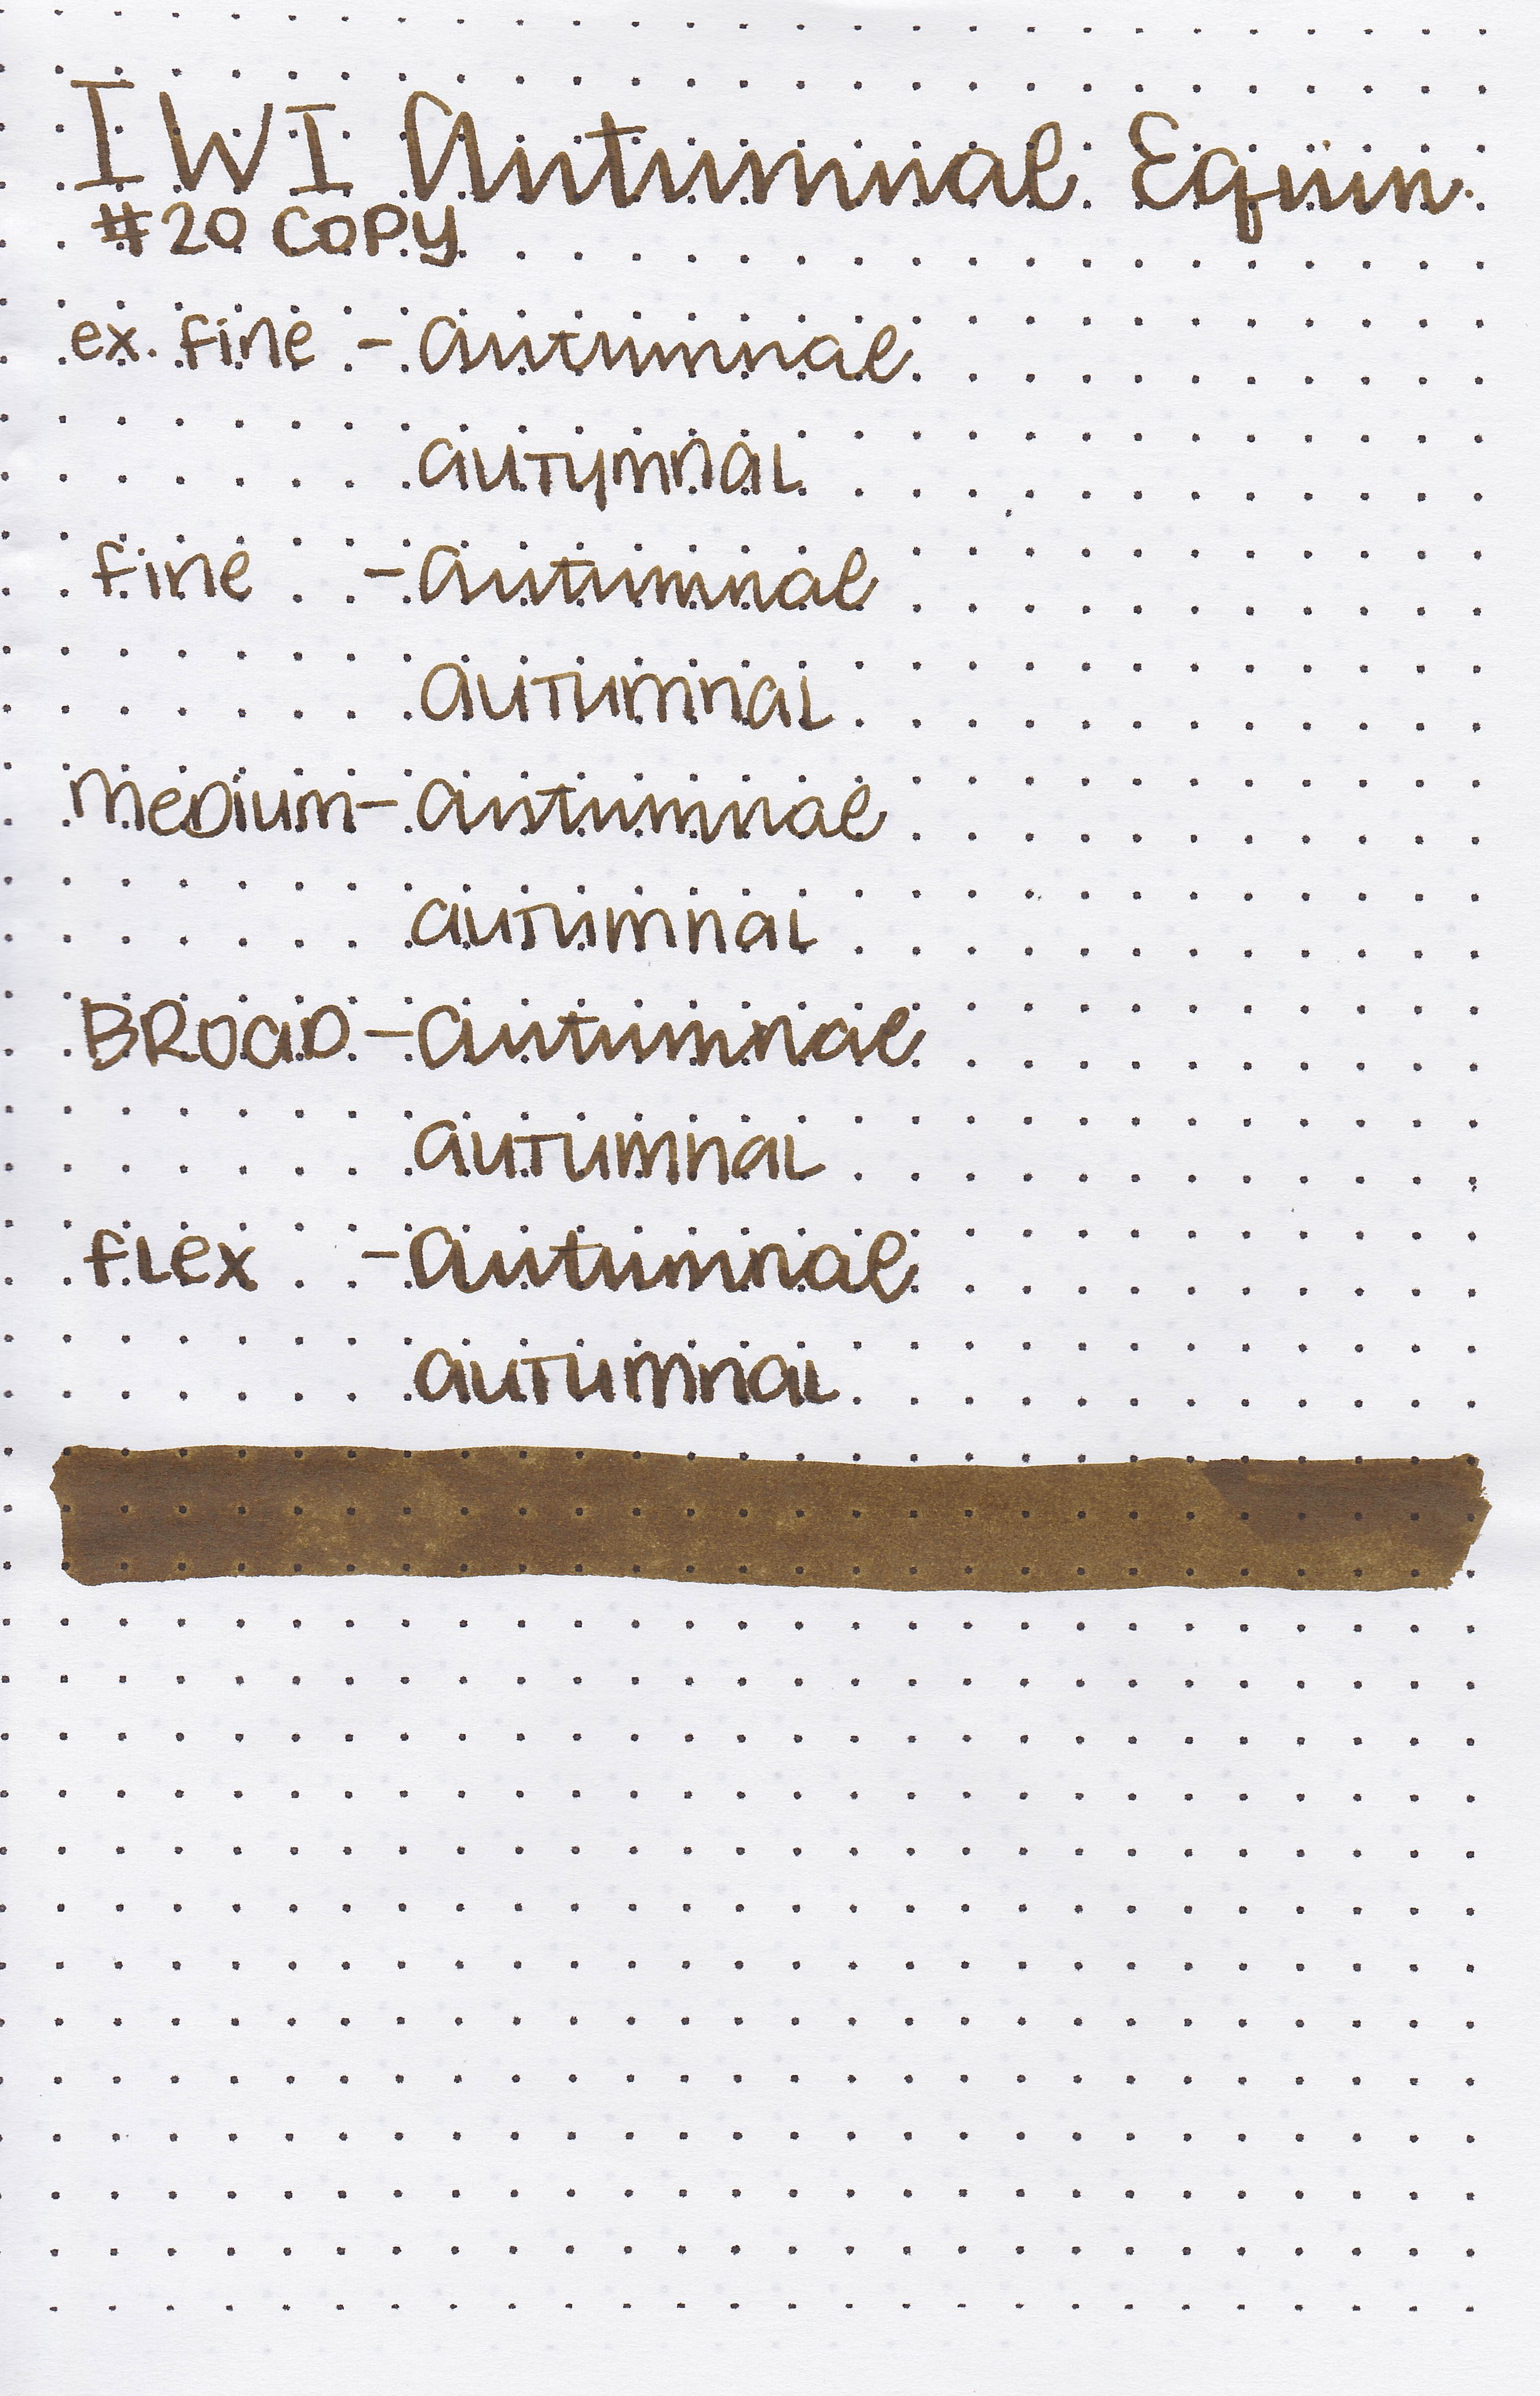 IWI Autumnal Equin.
#20 COPY
ex. fine - autumnal
autymnal
fine - autumnal
autumnal
medium - autumnal
autumnal
BROAD - autumnal
autumnal
flex - autumnal
autumnal